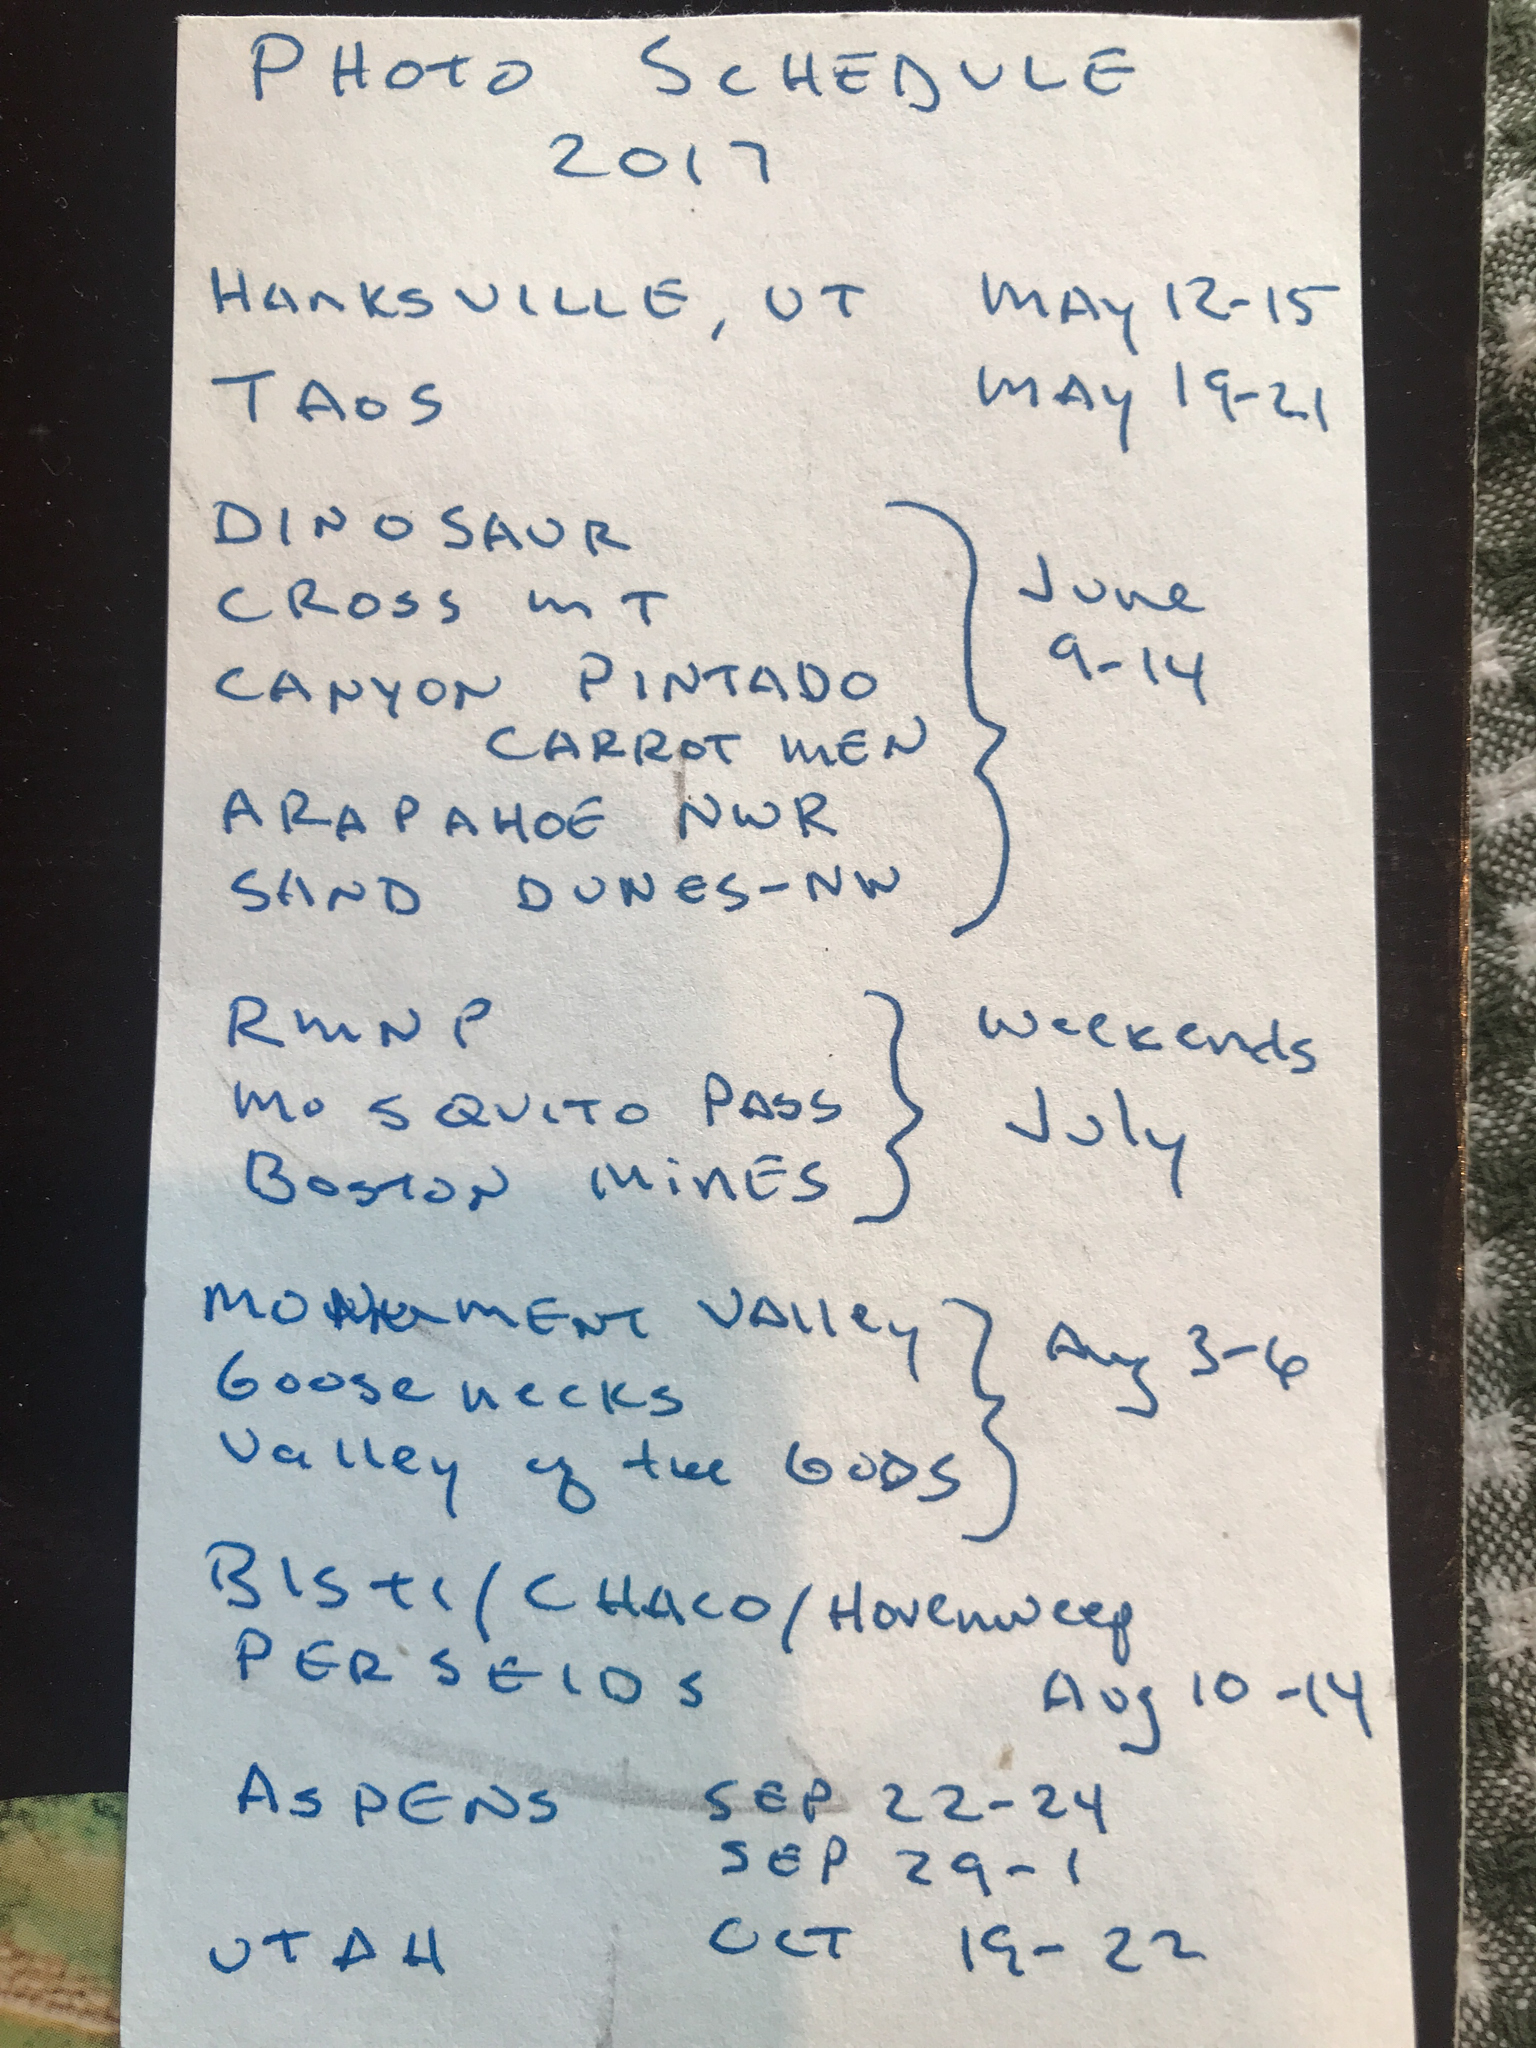 PHOTO SCHEDULE
2017
HANKSVILLE, UT MAY 12-15
TAOS MAY 19-21
DINOSAUR
CROSS MT
CANYON PINTADO
CARROT MEN
ARAPAHOE NWR
SAND DUNES-NW
June
9-14
RMNP
MOSQUITO PASS
BOSTON MINES
Weekends
July
MONUMENT VAlley
Goosenecks
Valley of the GODS
Aug 3-6
BISti/CHACO/Hovenweep
PERSEIDS Aug 10-14
ASPENS SEP 22-24
SEP 29-1
UTAH OCT 19-22